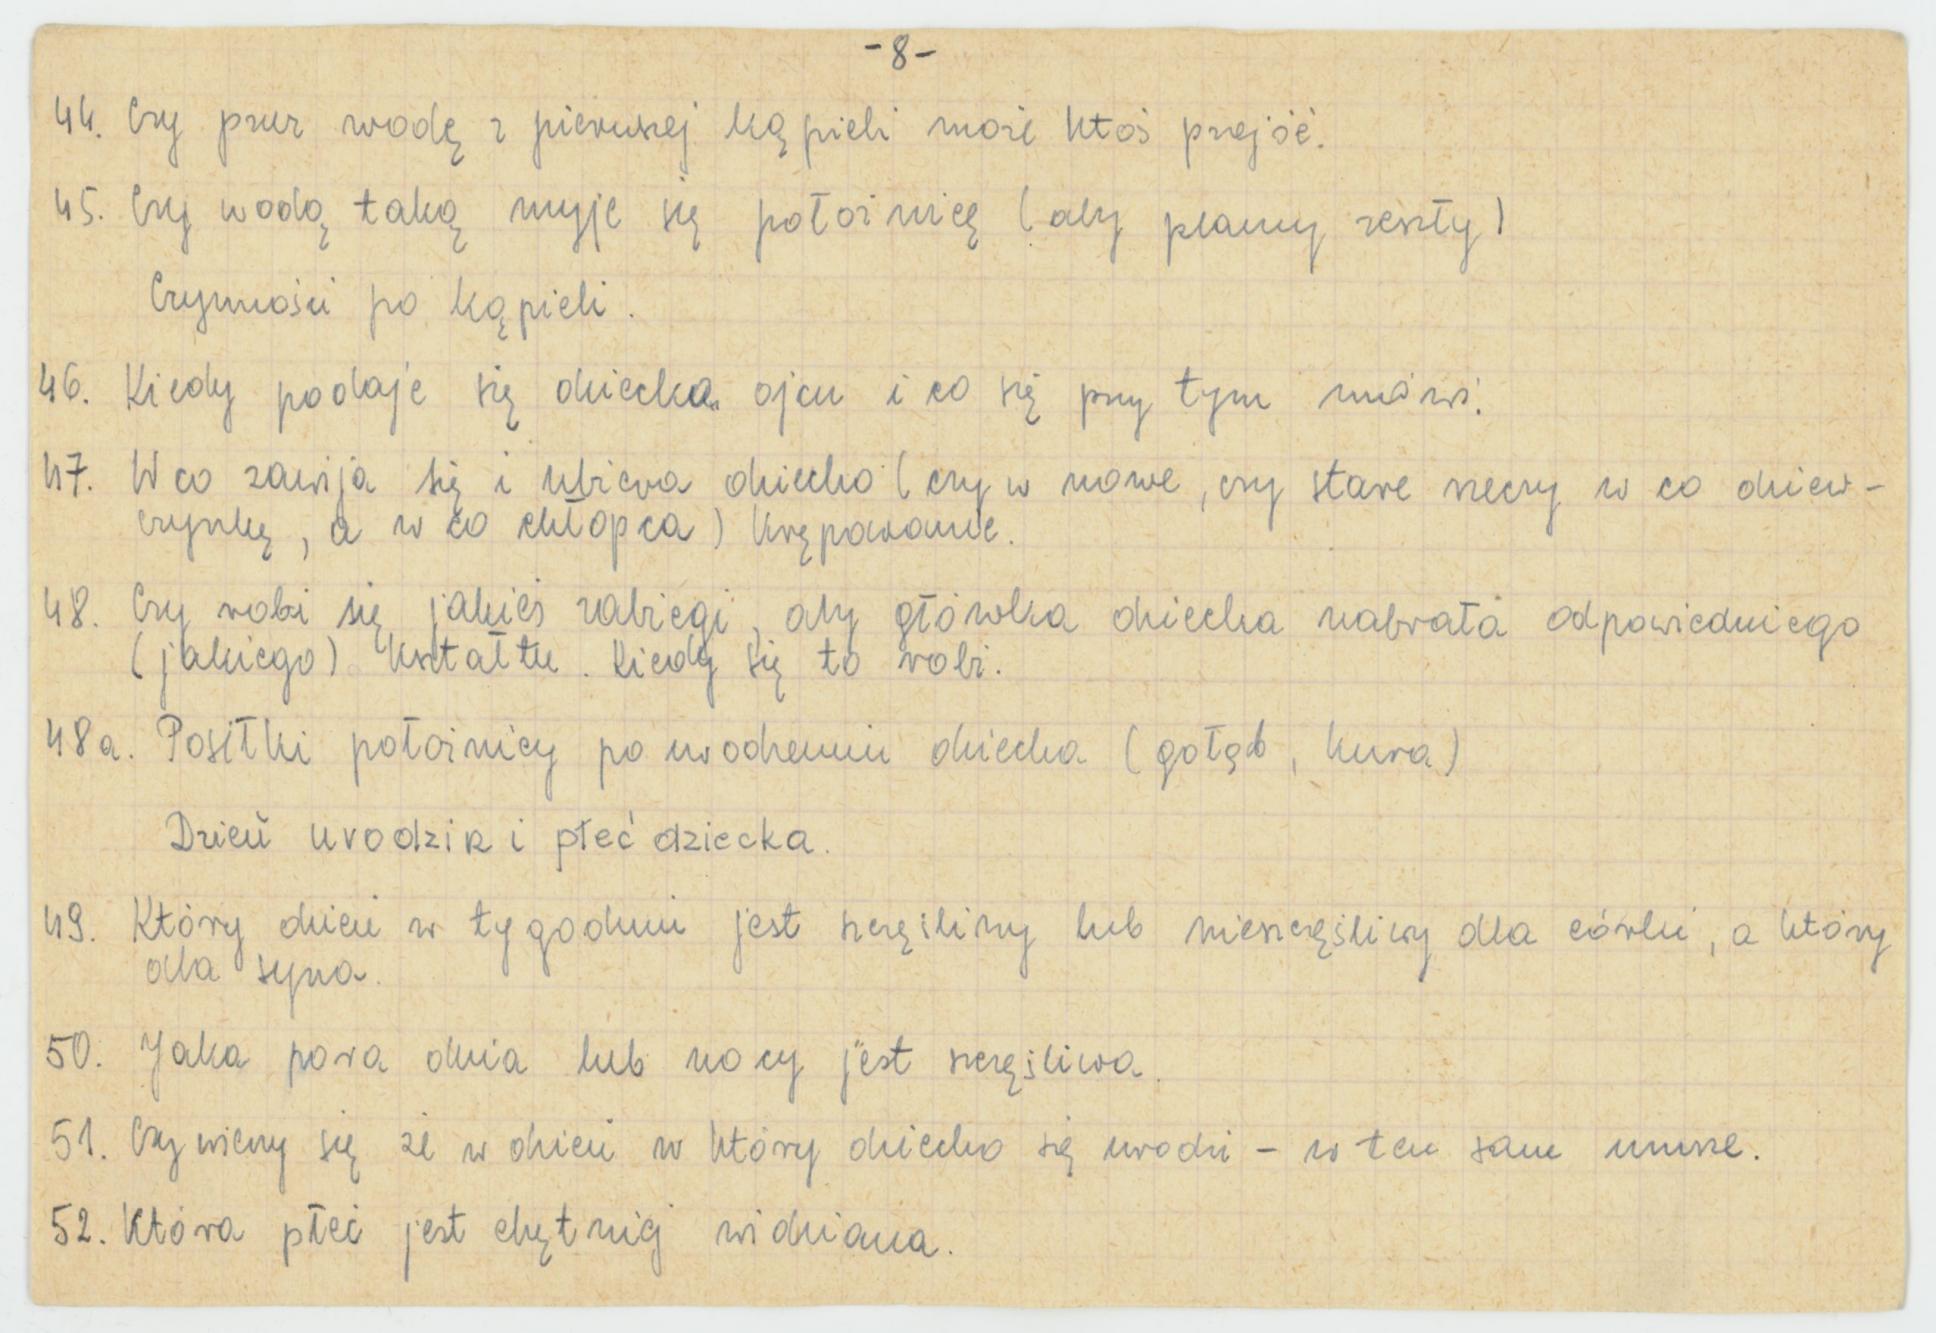 -8-
44. Czy przez wodę z pierwszej kąpieli może ktoś przejść.
45. Czy wodą taką myje się położnicę (aby plamy zeszły)
Czynności po kąpieli.
46. Kiedy podaje się dziecko ojcu i co się przy tym mówi.
47. W co zawija się i ubiera dziecko (czy w nowe, czy stare rzeczy w co dziew-
czynkę, a w co chłopca) Krępowanie.
48. Czy robi się jakieś zabiegi, aby główka dziecka nabrała odpowiedniego
(jakiego) kształtu. Kiedy się to robi.
48a. Posiłki położnicy po urodzeniu dziecka (gołąb, kura)
Dzień urodzin i płeć dziecka.
49. Który dzień w tygodniu jest szczęśliwy lub nieszczęśliwy dla córki, a który
dla syna.
50. Jaka pora dnia lub nocy jest szczęśliwa.
51. Czy wierzy się że w dzień w który dziecko się urodzi – w ten sam umrze.
52. Która płeć jest chętniej widziana.